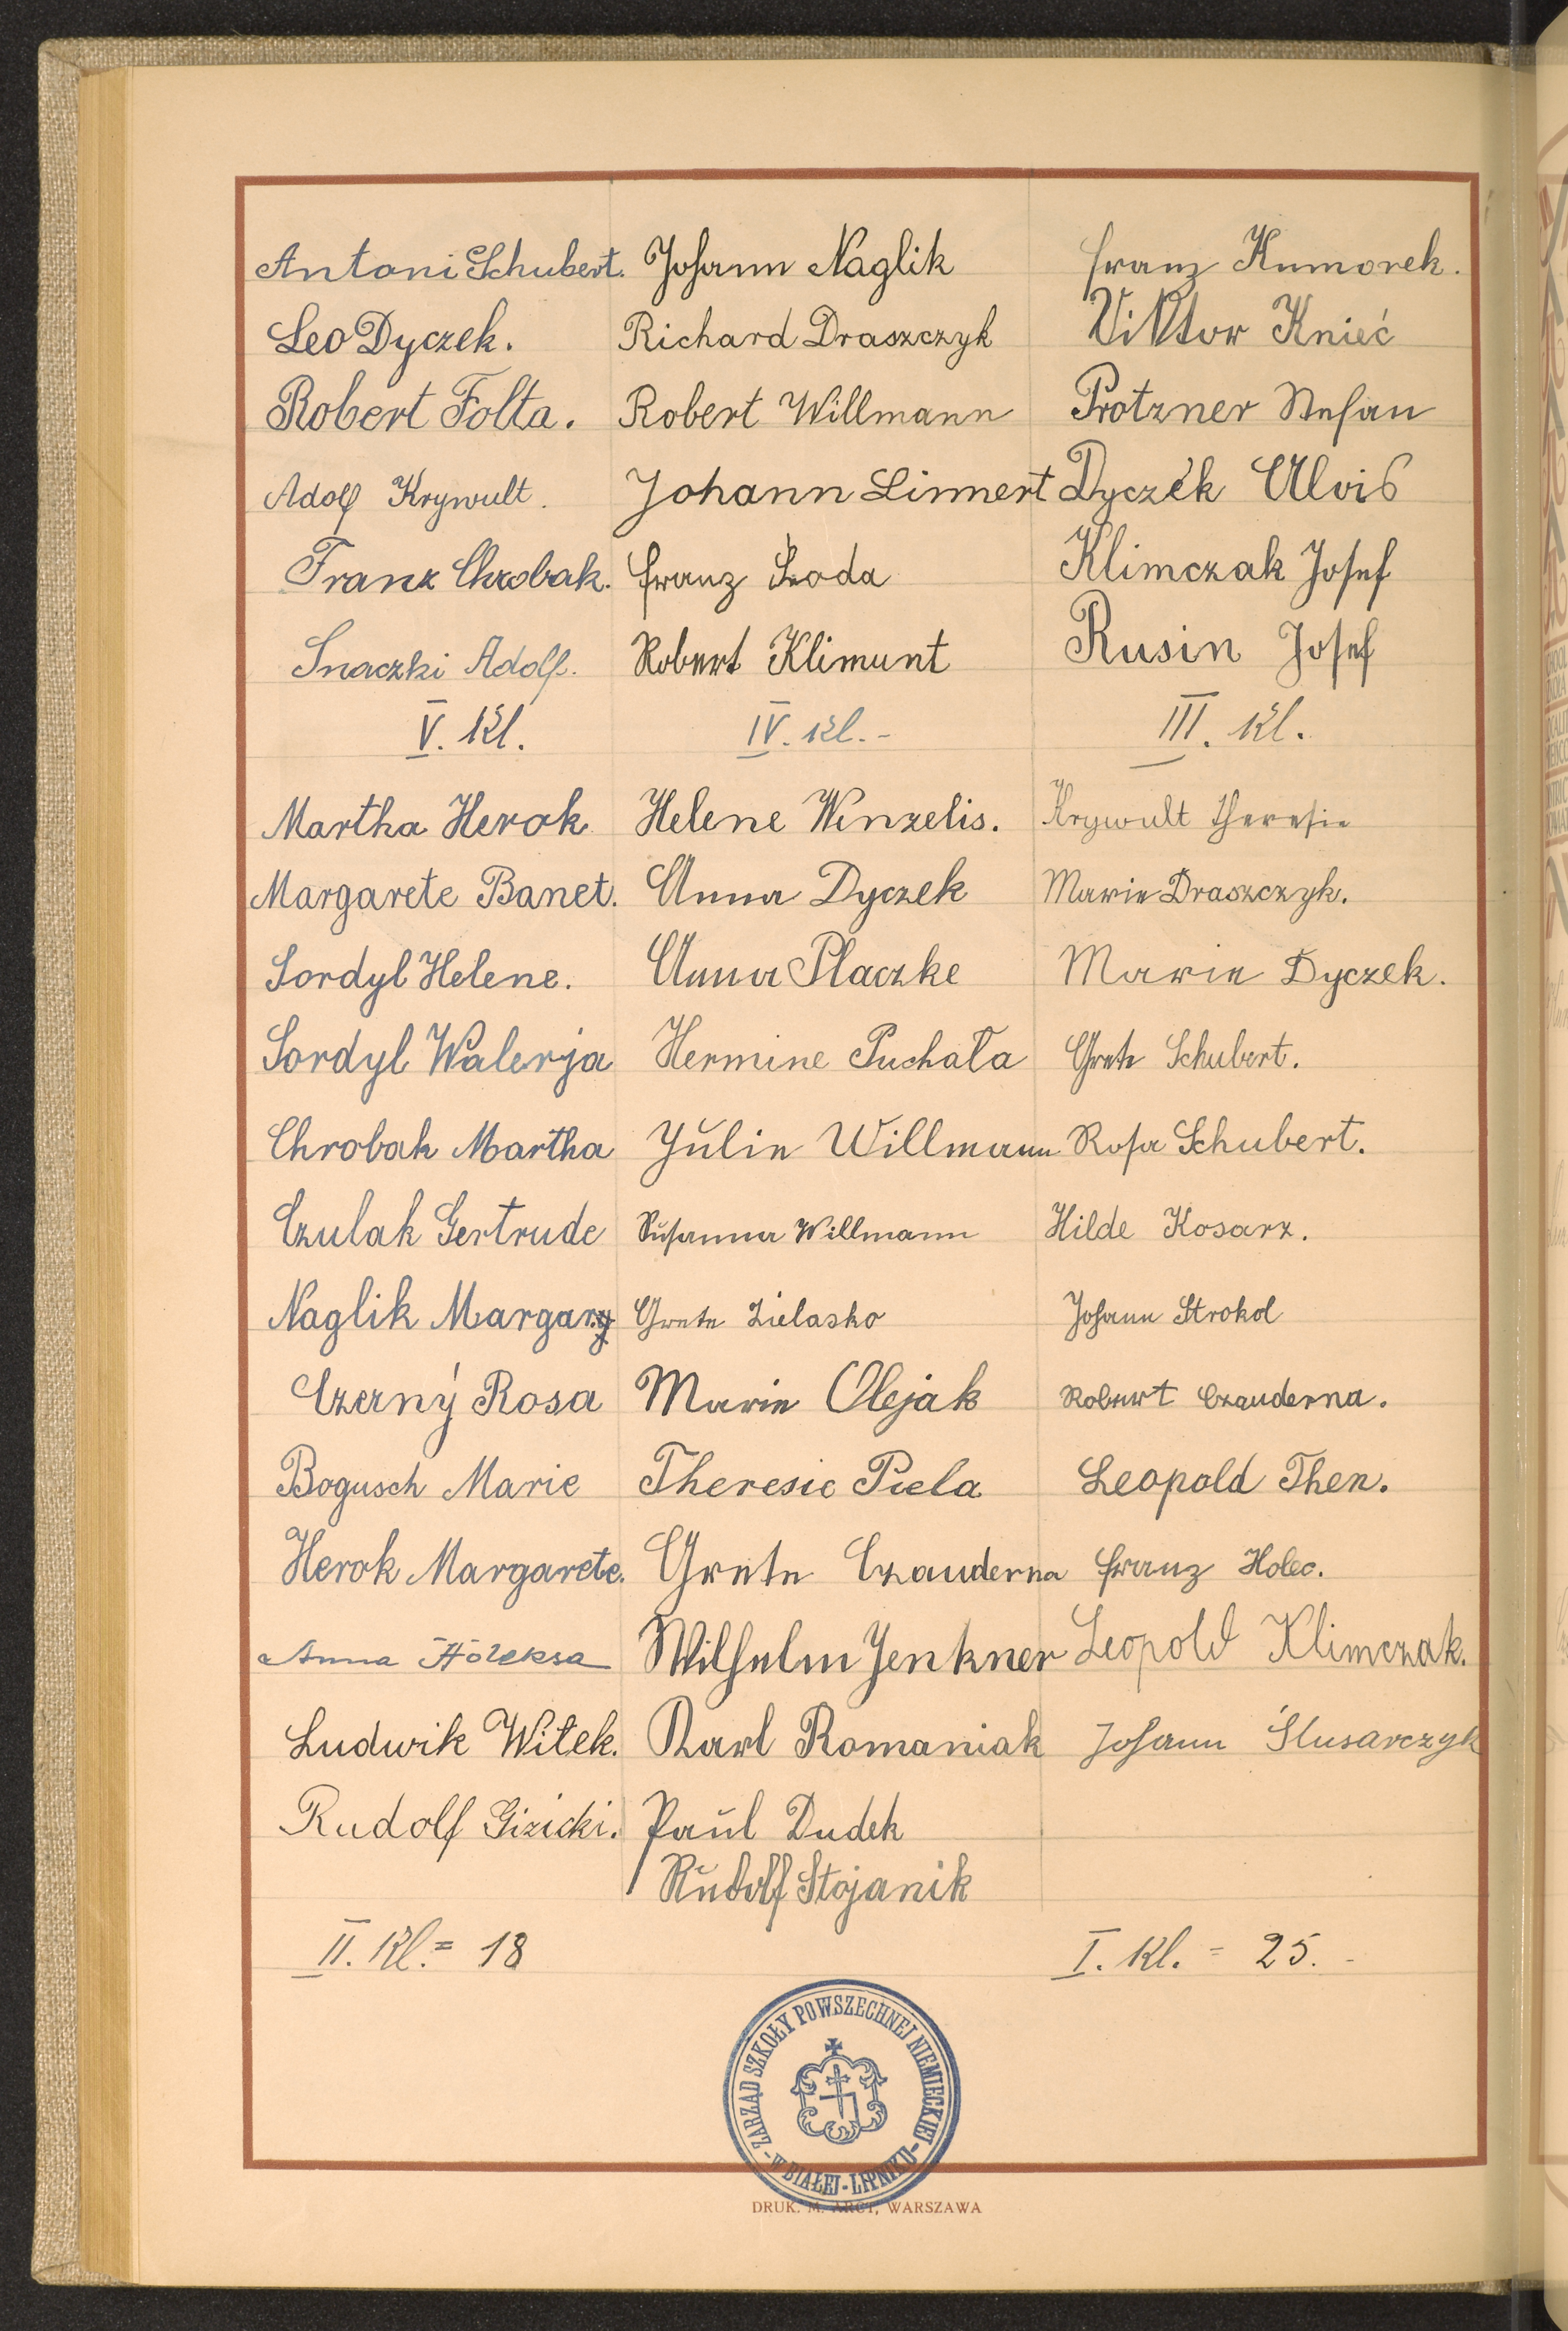 Antoni Schubert. Johann Naglik Franz Kumorek.
Leo Dyczek. Richard Draszczyk Viktor Knieć
Robert Folta. Robert Willmann Protzner Stefan
Adolf Krywult. Johann Linnert Dyczek Alois
Franz Chrobak. Franz Sroda Klimczak Josef
Snaczki Adolf. Robert Klimunt Rusin Josef
V. Kl. IV. Kl.- III. Kl.
Martha Herok Helene Wenzelis. Krywult Theresie
Margarete Banet. Anna Dyczek Marie Draszczyk.
Sordyl Helene. Anna Placzke Marie Dyczek.
Sordyl Walerja Hermine Puchała Grete Schubert.
Chrobak Martha Julie Willmann Rosa Schubert.
Czulak Gertrude Susanna Willmann Hilde Kosarz.
Naglik Margarg Grete Zielasko Johann Strokol
Czerný Rosa Marie Olejak Robert Czauderna.
Bogusch Marie Theresie Piela Leopold Then.
Herok Margarete. Grete Czauderna Franz Holec.
Anna Holeksa Wilhelm Jenkner Leopold Klimczak.
Ludwik Witek. Karl Romaniak Johann Ślusarczyk
Rudolf Gizicki. Paul Dudek
Rudolf Stojanik
II. Kl. = 18 I. Kl. = 25.-
ZARZĄD SZKOŁY POWSZECHNEJ NIEMIECKIEJ - W BIAŁEJ-LIPNIKU -
DRUK. M. ARCT, WARSZAWA